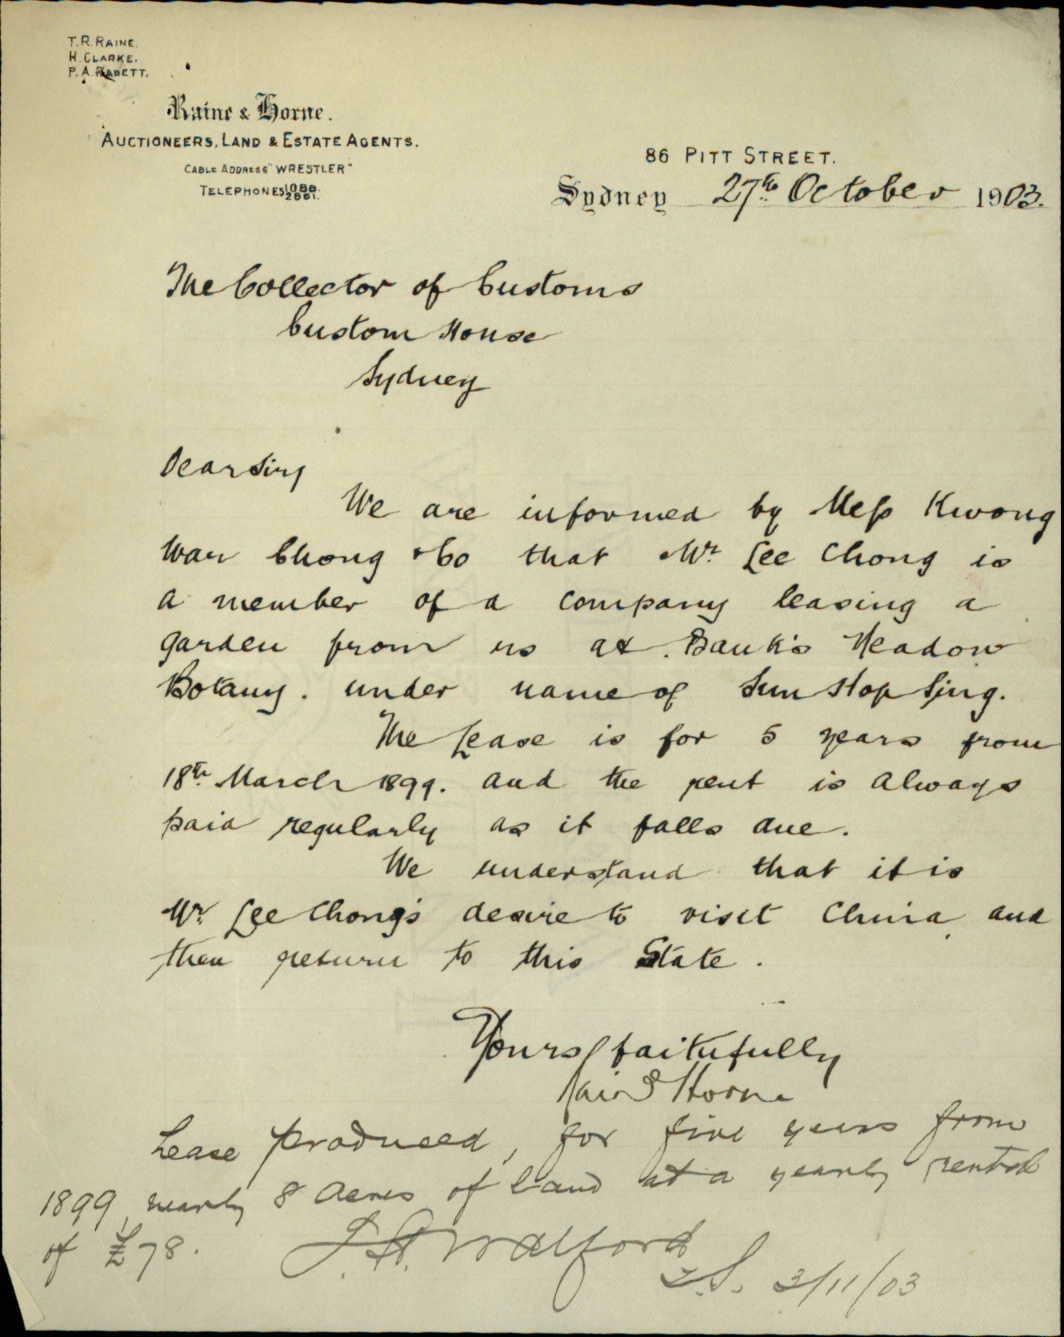 T. R. RAINE.
H. CLARKE.
P. A. RABETT.
Raine & Horne.
AUCTIONEERS, LAND & ESTATE AGENTS.
CABLE ADDRESS "WRESTLER"
TELEPHONES
86 PITT STREET.
Sydney 27th October 1903.
The Collector of Customs
Custom House
Sydney
Dear Sir,
We are informed by Mess Kwong
War Chong & Co that Mr. Lee Chong is
a member of a company leasing a
garden from us at Bank's Meadow
Botany. under name of Sun Hop Sing.
The Lease is for 5 years from
18th March 1899. and the rent is always
paid regularly as it falls due.
We understand that it is
Mr. Lee Chong's desire to visit China and
then return to this State.
Yours faithfully
Raine & Horne
Lease produced, for five years from
1899, nearly 8 acres of land at a yearly rental
of £78.
J. A. Walford
3/11/03